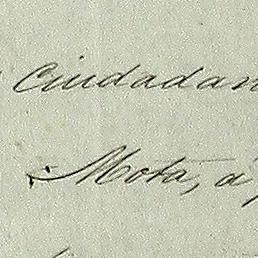 Ciudadan
Mota, á